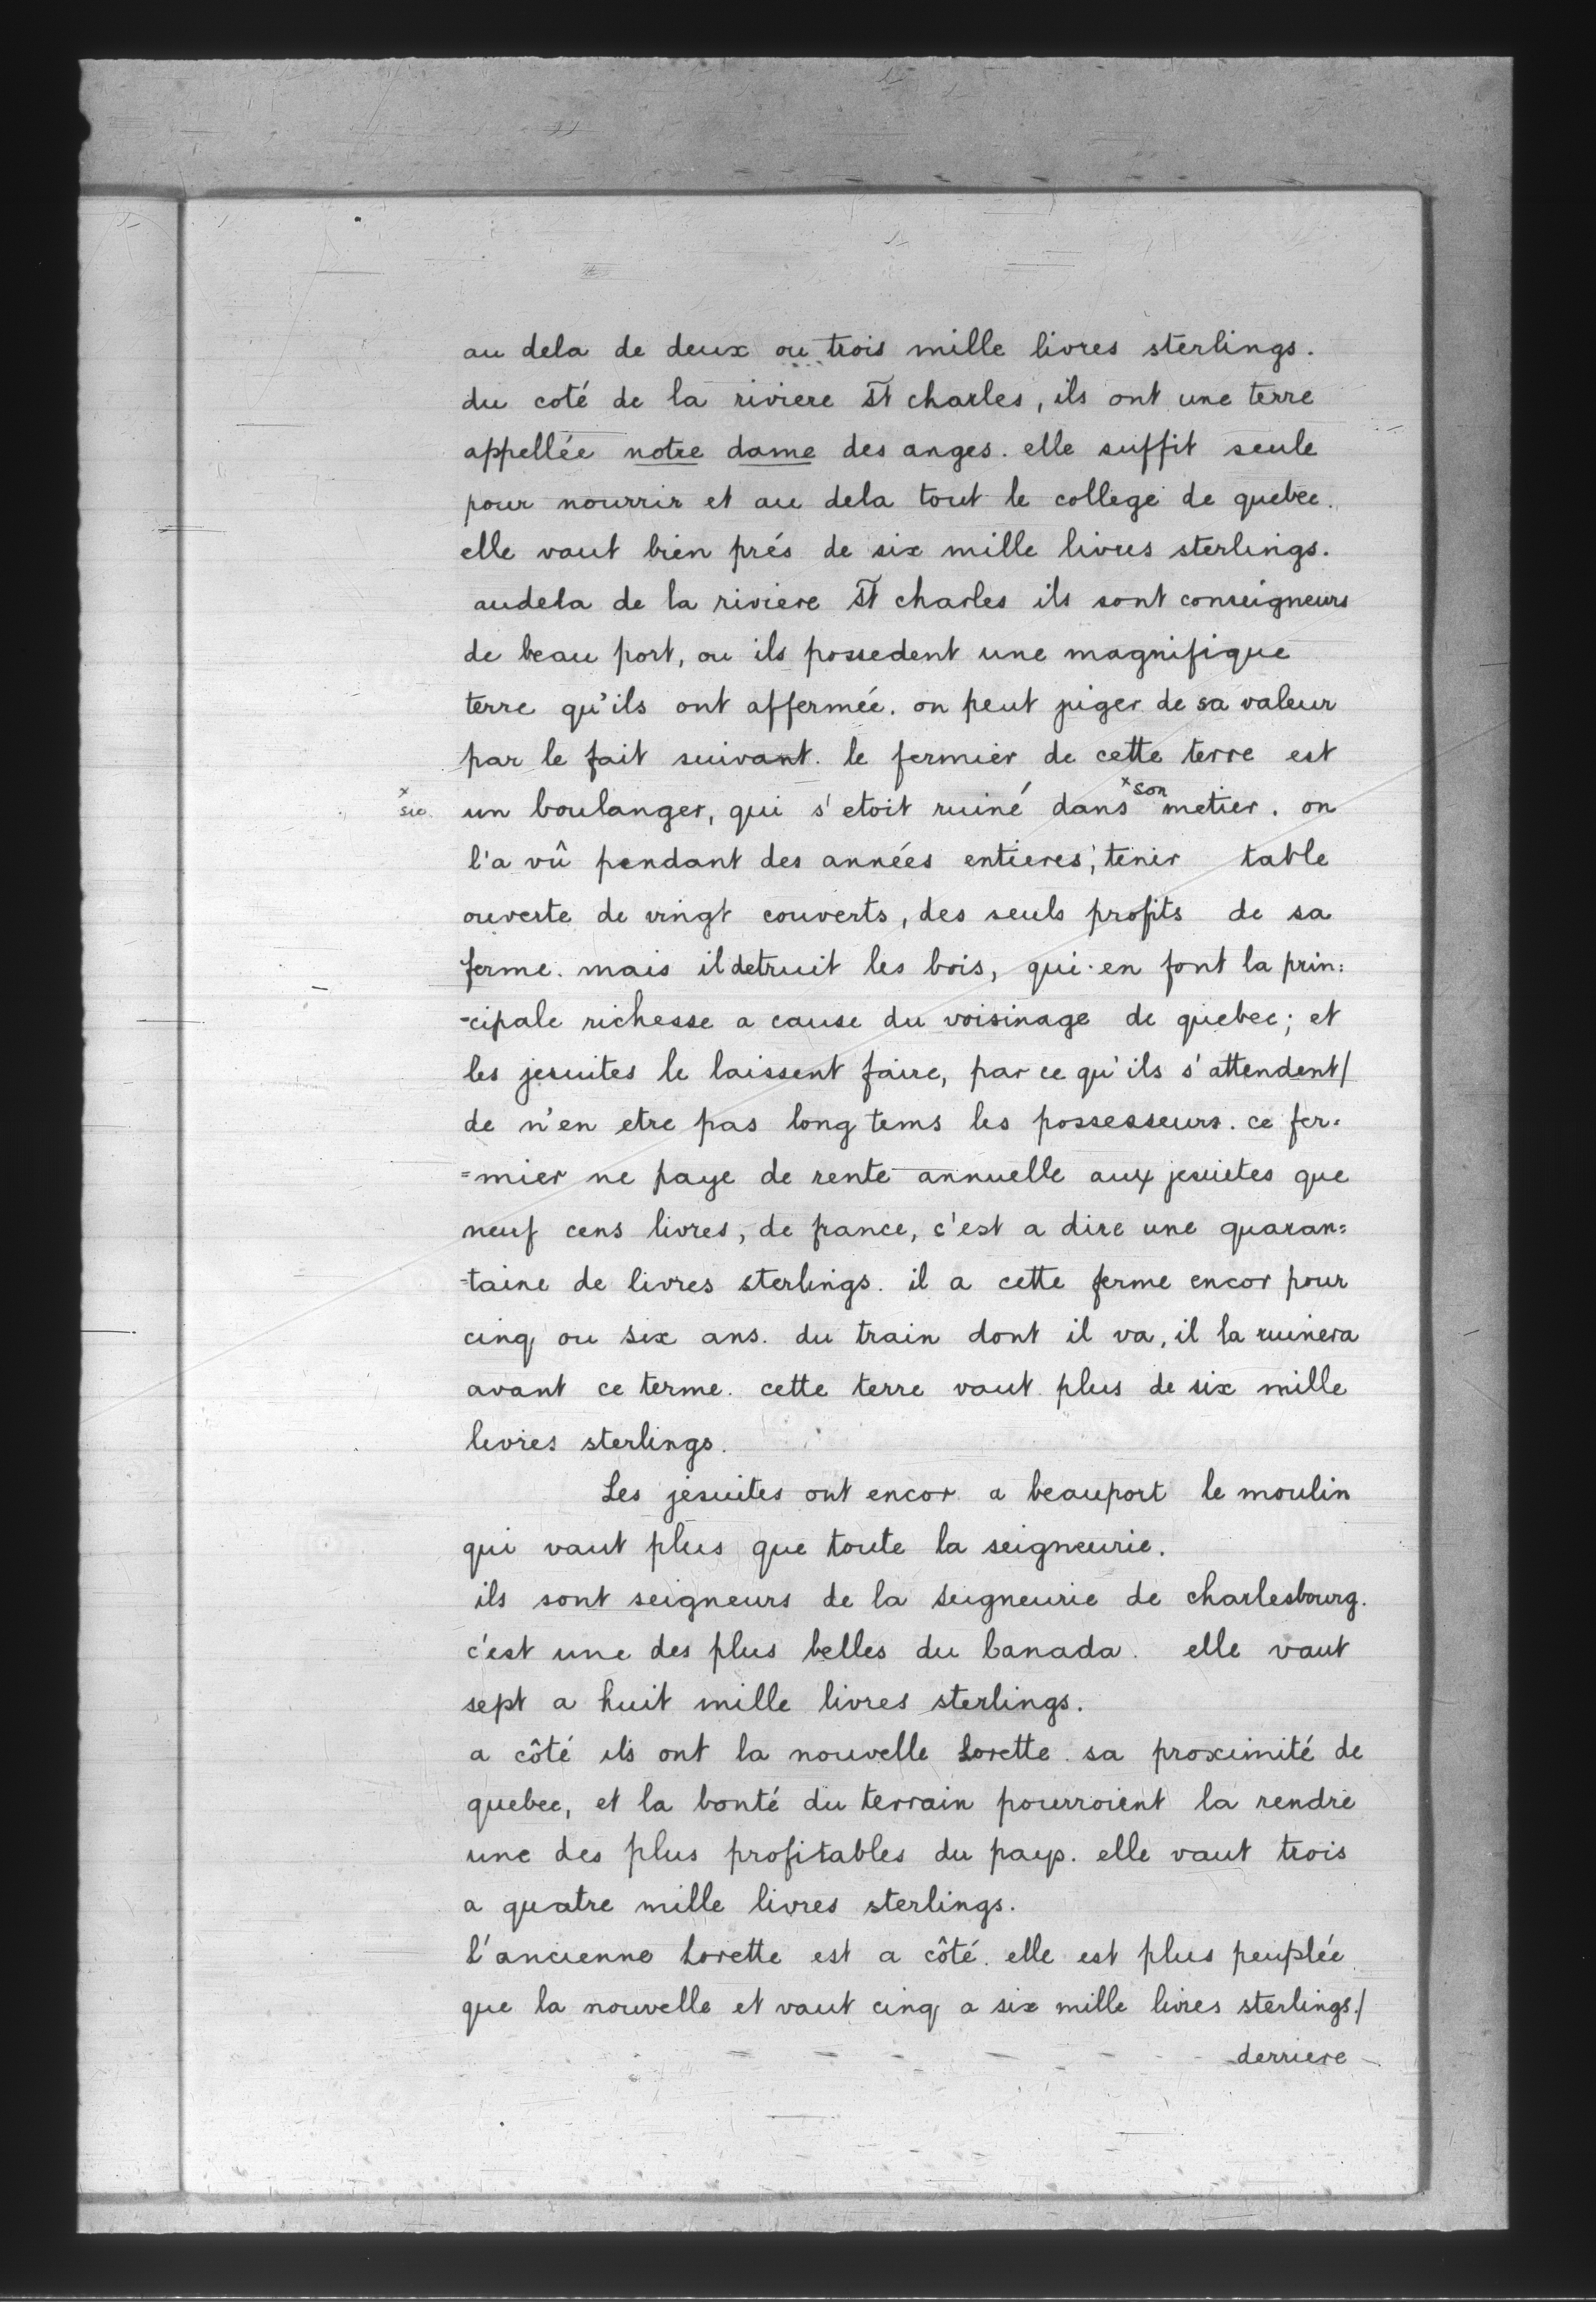 au dela de deux ou trois mille livres sterlings.
du coté de la riviere St charles, ils ont une terre
appellée notre dame des anges. elle suffit seule
pour nourrir et au dela tout le college de quebec.
elle vaut bien prés de six mille livres sterlings.
audela de la riviere St charles ils sont conseigneurs
de beau port, ou ils possedent une magnifique
terre qu'ils ont affermée. on peut juger de sa valeur
par le fait suivant. le fermier de cette terre est
x sic. un boulanger, qui s'etoit ruiné dans x son metier. on
l'a vû pendant des années entieres, tenir table
ouverte de vingt couverts, des seuls profits de sa
ferme. mais il detruit les bois, qui en font la prin=
=cipale richesse a cause du voisinage de quebec; et
les jesuites le laissent faire, par ce qu'ils s'attendent/
de n'en etre pas long tems les possesseurs. ce fer=
=mier ne paye de rente annuelle aux jesuites que
neuf cens livres, de france, c'est a dire une quaran=
=taine de livres sterlings. il a cette ferme encor pour
cinq ou six ans. du train dont il va, il la ruinera
avant ce terme. cette terre vaut plus de six mille
livres sterlings.
Les jesuites ont encor a beauport le moulin
qui vaut plus que toute la seigneurie.
ils sont seigneurs de la seigneurie de charlesbourg.
c'est une des plus belles du Canada. elle vaut
sept a huit mille livres sterlings.
a côté ils ont la nouvelle Lorette. sa proximité de
quebec, et la bonté du terrain pourroient la rendre
une des plus profitables du pays. elle vaut trois
a quatre mille livres sterlings.
l'ancienne Lorette est a côté. elle est plus peuplée
que la nouvelle et vaut cinq a six mille livres sterlings./
derriere